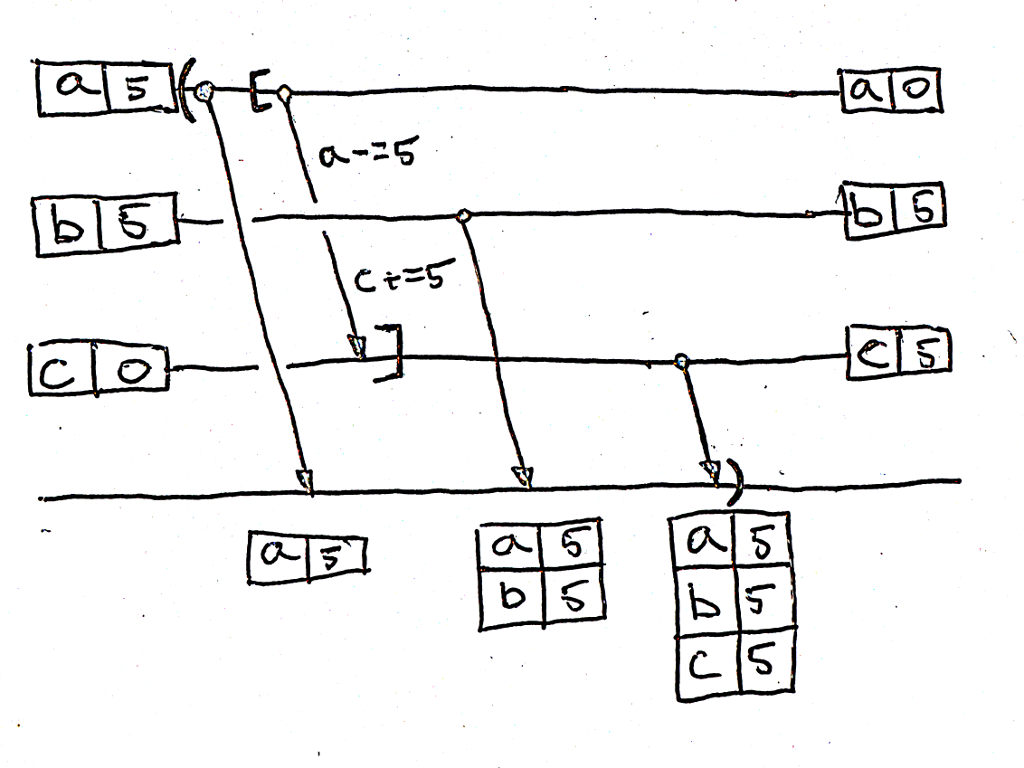 a 5 ( [ a 0
a -= 5
b 5 b 5
c += 5
c 0 ] c 5
)
a 5
a 5
b 5
a 5
b 5
c 5